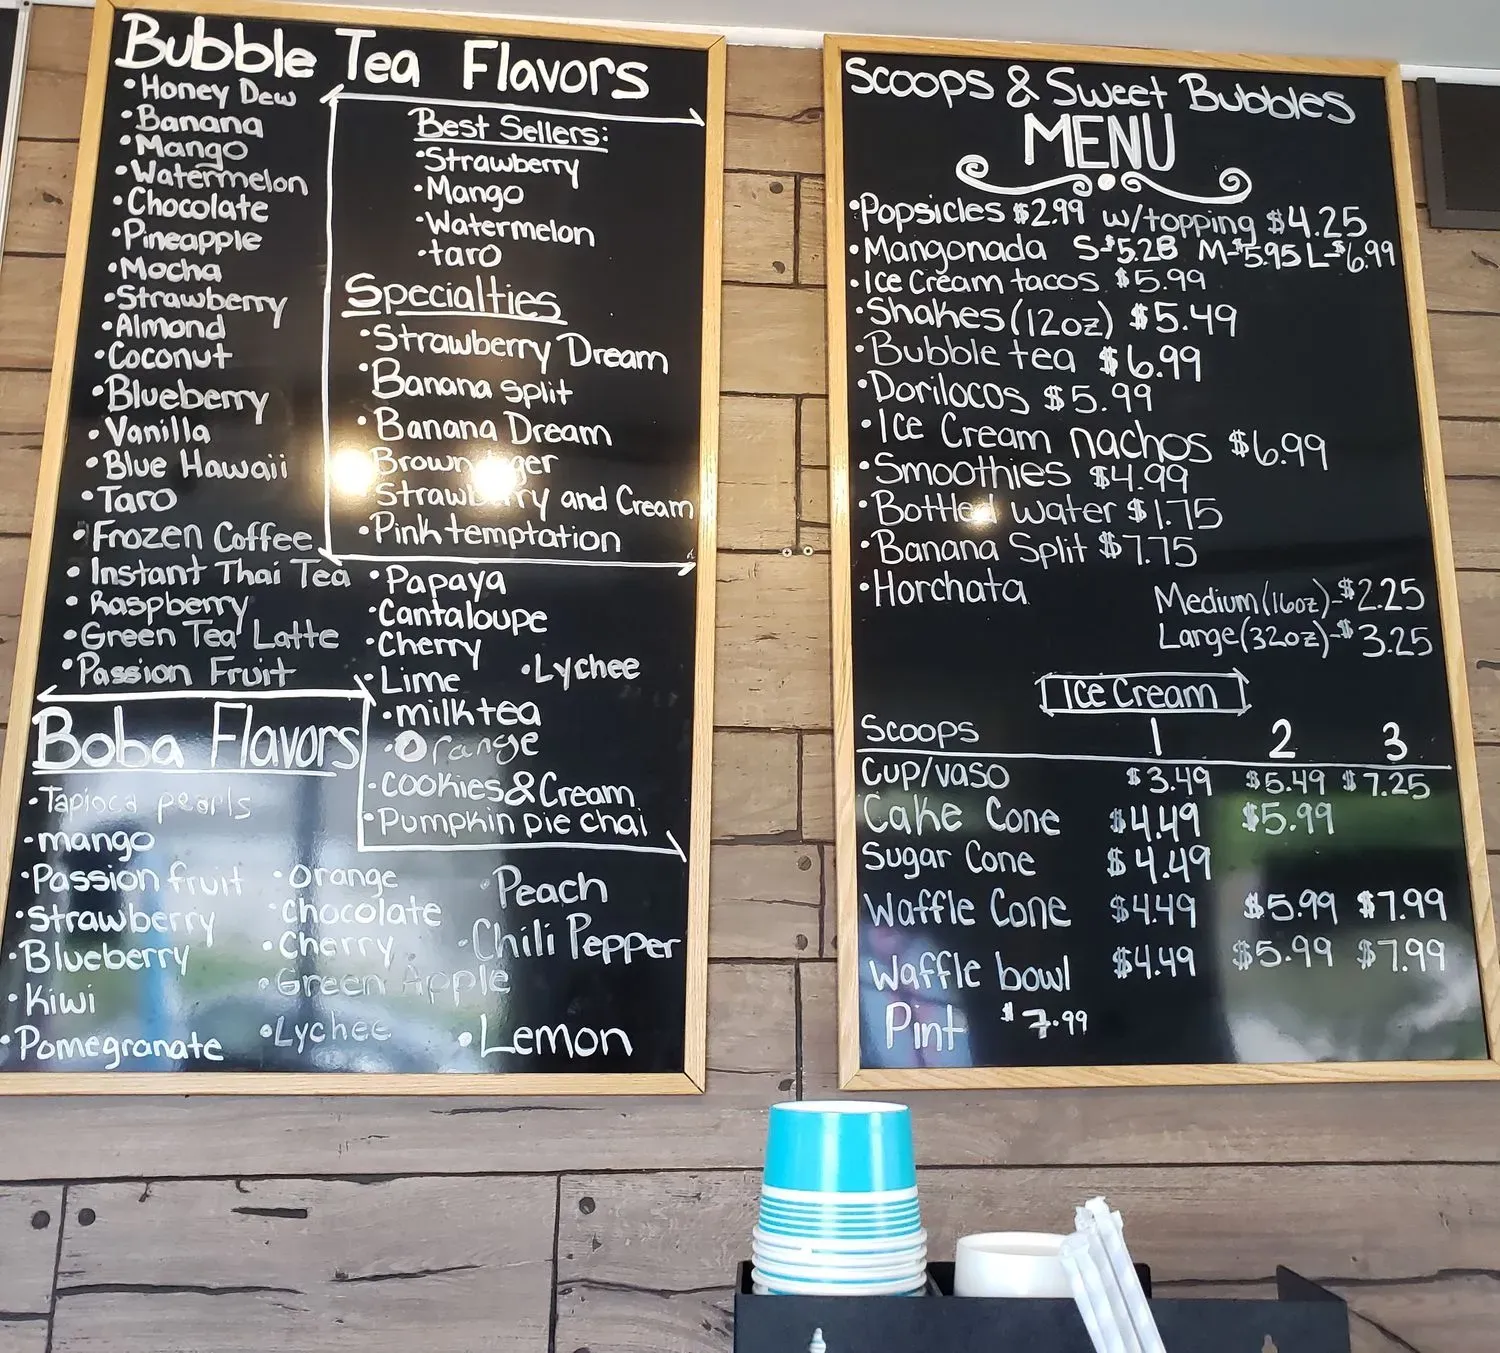 Bubble Tea Flavors
•Honey Dew
•Banana
•Mango
•Watermelon
•Chocolate
•Pineapple
•Mocha
•Strawberry
•Almond
•Coconut
•Blueberry
•Vanilla
•Blue Hawaii
•Taro
•Frozen Coffee
•Instant Thai Tea
•Raspberry
•Green Tea Latte
•Passion Fruit
Best Sellers:
•Strawberry
•Mango
•Watermelon
•taro
Specialties
•Strawberry Dream
•Banana split
•Banana Dream
Brown
Strawberry and Cream
•Pink temptation
•Papaya
•Cantaloupe
•Cherry
•Lime •Lychee
•milk tea
•Orange
•Cookies & Cream
•Pumpkin pie chai
Boba Flavors
•Tapioca pearls
•mango
•Passion fruit
•Strawberry
•Blueberry
•Kiwi
•Pomegranate
•orange
•chocolate
•Cherry
•Green Apple
•Lychee
•Peach
•Chili Pepper
•Lemon
Scoops & Sweet Bubbles
MENU
•Popsicles $2.99 w/topping $4.25
•Mangonada S-$5.28 M-$5.95 L-$6.99
•Ice Cream tacos $5.99
•Shakes (12oz) $5.49
•Bubble tea $6.99
•Dorilocos $5.99
•Ice Cream nachos $6.99
•Smoothies $4.99
•Bottled water $1.75
•Banana Split $7.75
•Horchata Medium (16oz)-$2.25
Large (32oz)-$3.25
Ice Cream
Scoops 1 2 3
Cup/vaso $3.49 $5.49 $7.25
Cake Cone $4.49 $5.99
Sugar Cone $4.49
Waffle Cone $4.49 $5.99 $7.99
Waffle bowl $4.49 $5.99 $7.99
Pint $7.99